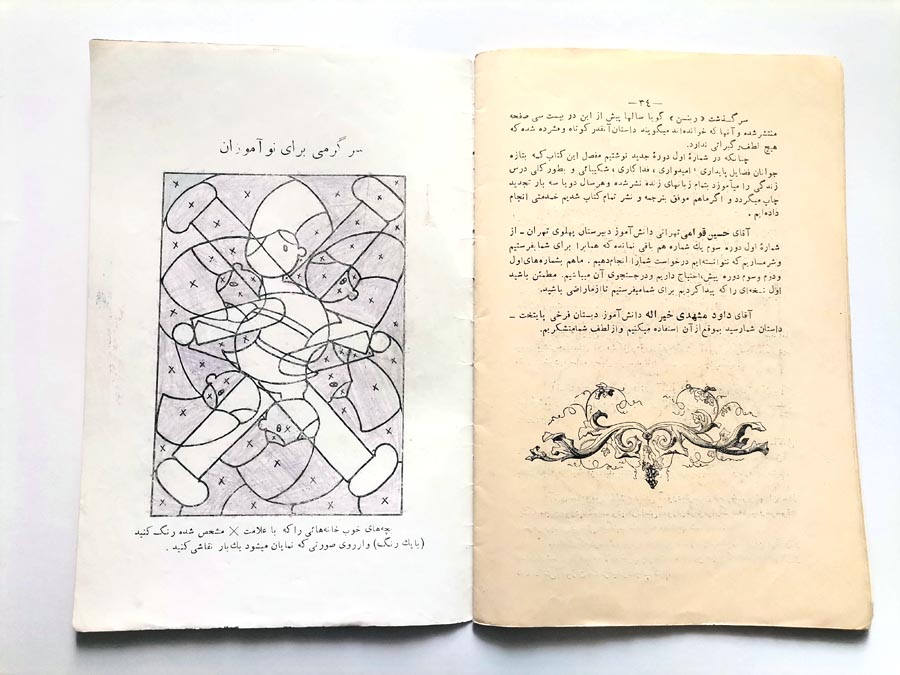 —۳۴—
سرگذشت « ربنسن » گویا سالها پیش از این در بیست سی صفحه
منتشر شده و آنها که خوانده‌اند میگویند داستان آنقدر کوتاه و فشرده شده که
هیچ لطف و گیرائی ندارد.
چنانکه در شمارهٔ اول دورهٔ جدید نوشتیم مفصل این کتاب که بتازه
جوانان فضایل پایداری ، امیدواری ، فداکاری ، شکیبائی و بطور کلی درس
زندگی را میآموزد بتمام زبانهای زنده نشر شده و هر سال دو یا سه بار تجدید
چاپ میگردد و اگر ما هم موفق بترجمه و نشر تمام کتاب شدیم خدمتی انجام
داده‌ایم .
آقای حسین قوامی تهرانی دانش‌آموز دبیرستان پهلوی تهران ـ از
شمارهٔ اول دوره سوم یك شماره هم باقی نمانده که همانرا برای شما بفرستیم
و شرمساریم که نتوانسته‌ایم درخواست شما را انجام دهیم . ما هم بشماره‌های اول
ودوم وسوم دوره پیش احتیاج داریم و در جستجوی آن میباشیم. مطمئن باشید
اول نسخه‌ای را که پیدا کردیم برای شما میفرستیم تا از ما راضی باشید.
آقای داود مشهدی خیراله دانش‌آموز دبستان فرخی پایتخت ـ
داستان شما رسید بموقع از آن استفاده میکنیم و از لطف شما متشکریم.
سرگرمی برای نوآموزان
بچه‌های خوب خانه‌هائی را که با علامت × مشخص شده رنگ کنید
(با یك رنگ) و از روی صورتی که نمایان میشود یك بار نقاشی کنید .